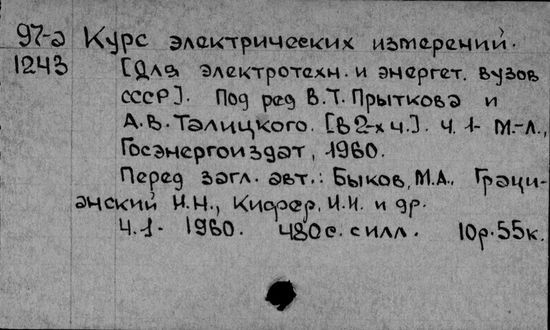 97-а Курс электрических измерений.
1243 [Для электротехн. и энергет. вузов
СССР]. Под ред В.Т. Прыткова и
А.В. Талицкого. [В 2-х ч.]. ч. 1- М.-Л.,
Госэнергоиздат, 1960.
Перед загл. авт.: Быков, М.А., Граци-
анский И.Н., Кифер, И.И. и др.
Ч.1- 1960. 480 с. с илл. 10 р. 55 к.